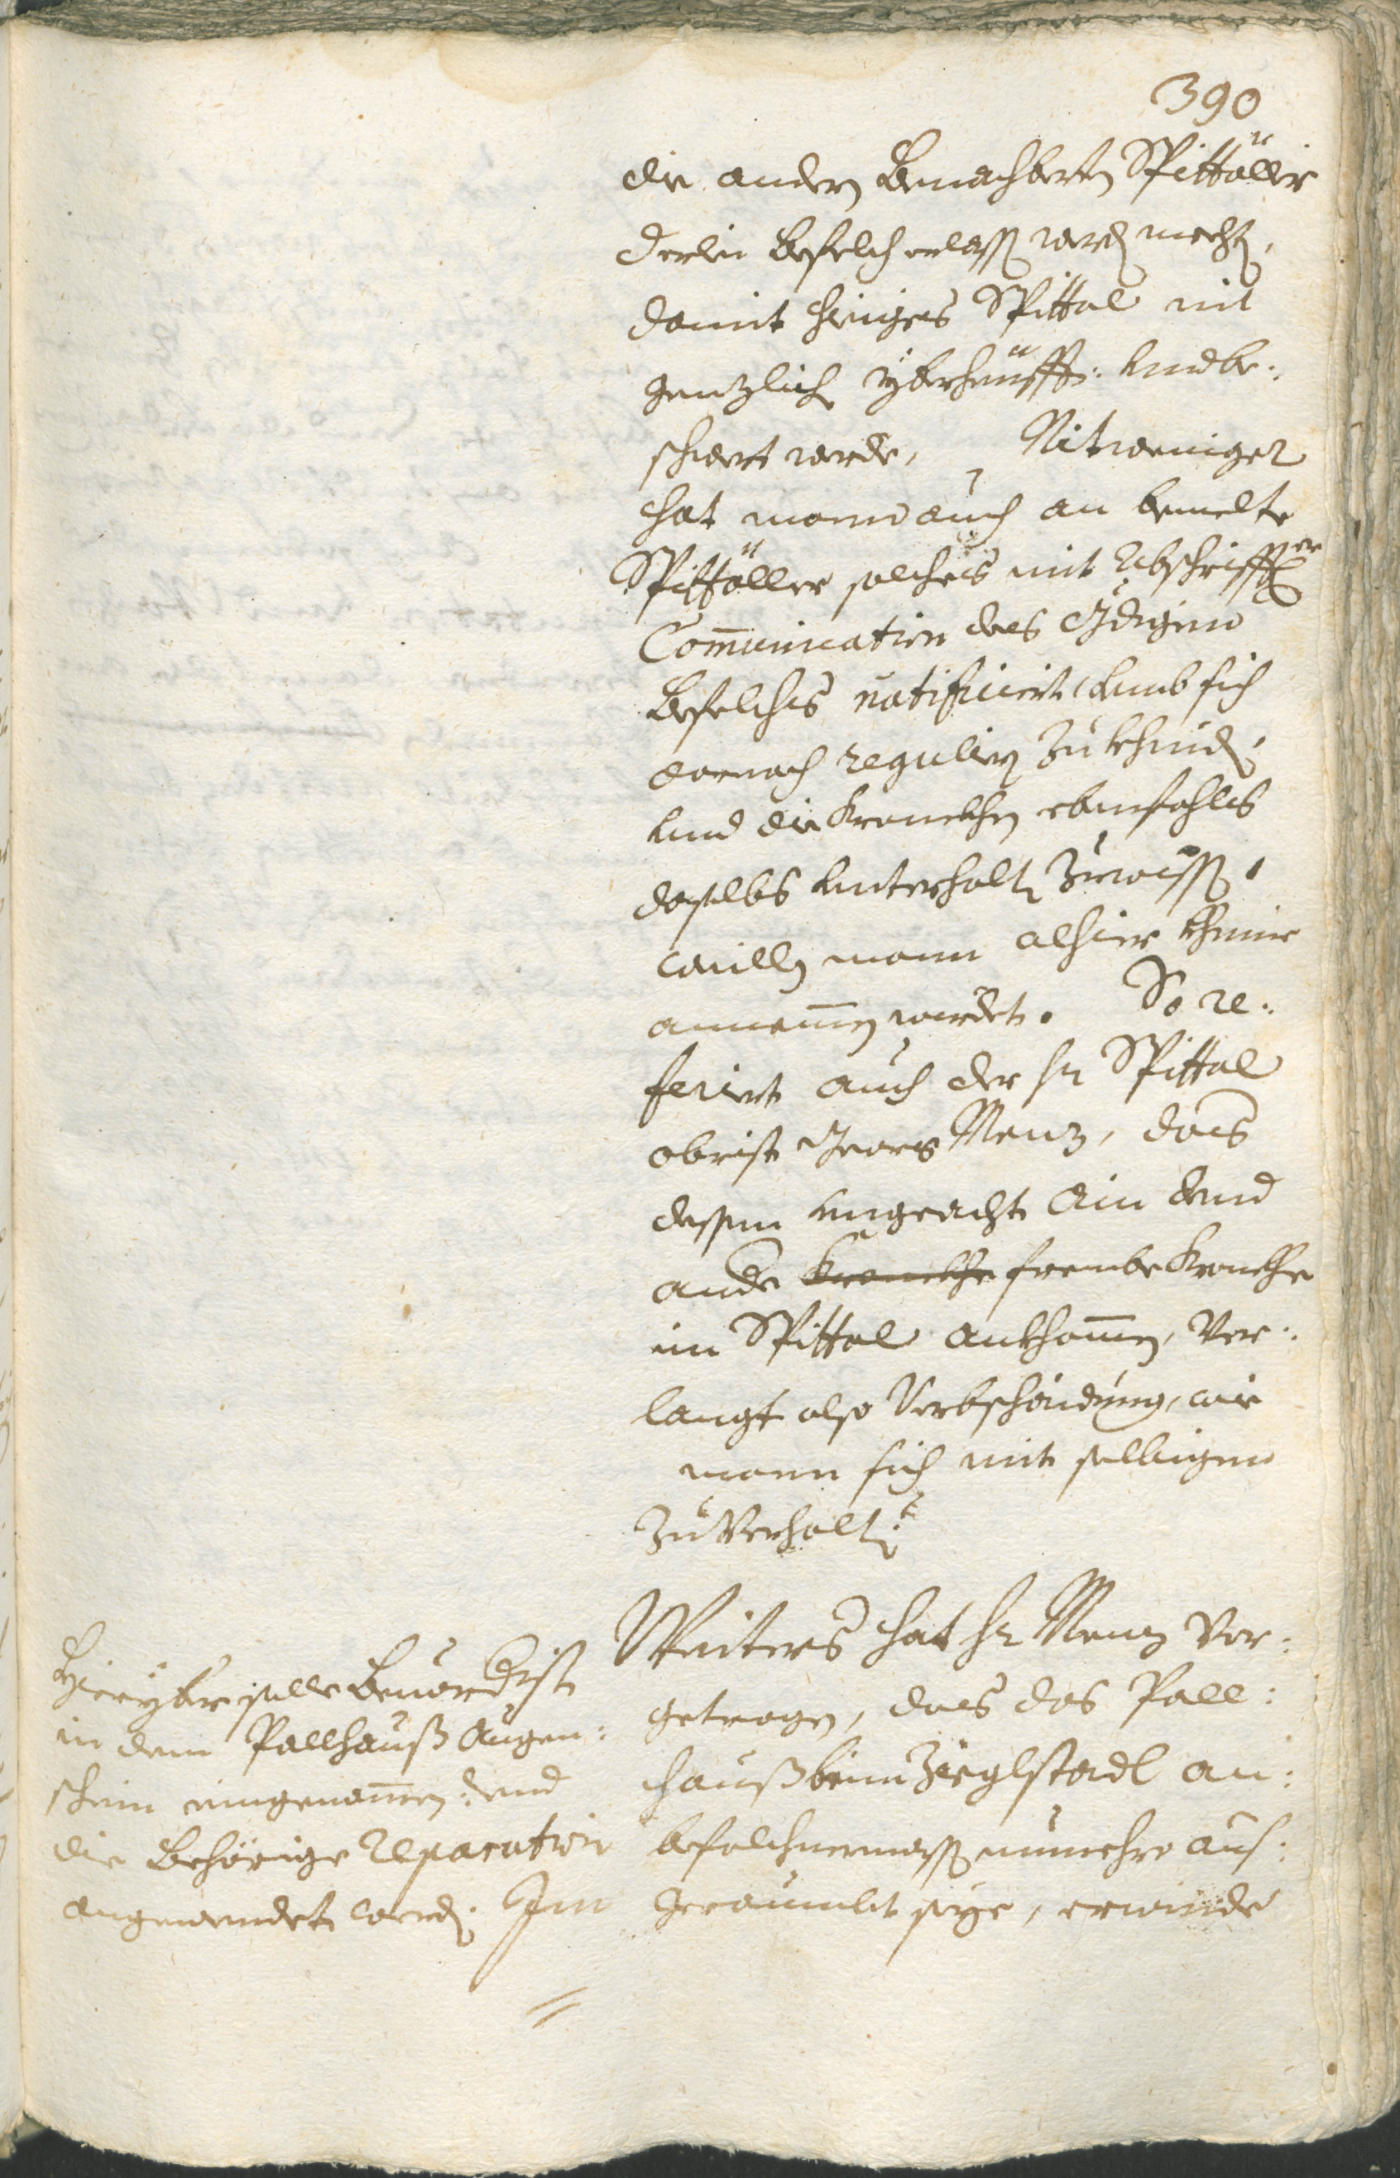 390
die andern benachberten Spittäller
derlei Befelch erlassn werdn mechtn,
damit hieiges Spittal nit
genzlich yberheüfft: unnd be:
schwert werde, Nit weniger
hat mann auch an bemelte
Spittäller solches mit Abschrifft
Communication des gdigen
Befelches notificiert, umb sich
darnach regulirn zu khindn,
unnd die Krankhen ebenfahls
daselbs underhaltn zu wissn,
weilln mann alhier kheine
annemmen wurdet. So re:
feriert auch der hr Spittal
obrist Georg Menz, das
dessen ungeacht ain unnd
ande Krankhe frembe Krankhe
im Spittal ankhommen, ver:
langt also Verbschaidung, wie
mann sich mit selbigen
zuverhaltn?
Weiters hat hr Menz vor:
getragen, das das Pall:
hauß beim Zieglstadl an:
befolchnermassn nunmehro aus:
geraumbt seye, erwinde
Hieryber solle bevordist
in dem Pallhauß Augen:
schein eingenommen: und
die behörige reparation
angewendet werdn. Im